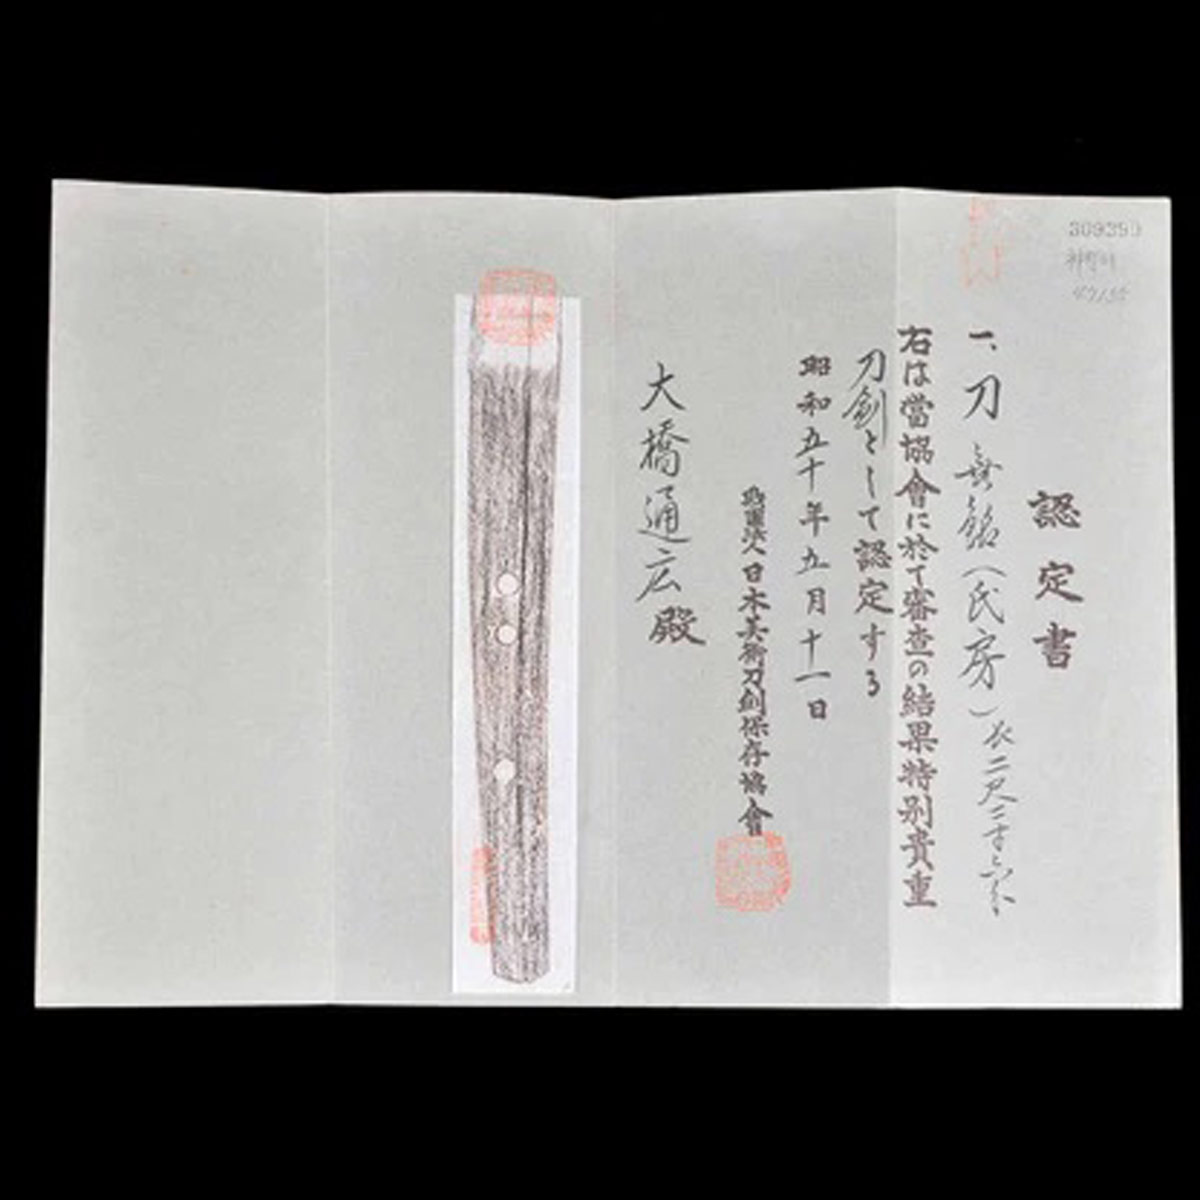 認定書
一、刀 無銘(氏房)長二尺三寸六分
右は當協會に於て審査の結果特別貴重
刀劍として認定する
昭和五十年五月十一日
財團法人日本美術刀劍保存協會
大橋通広殿
309390